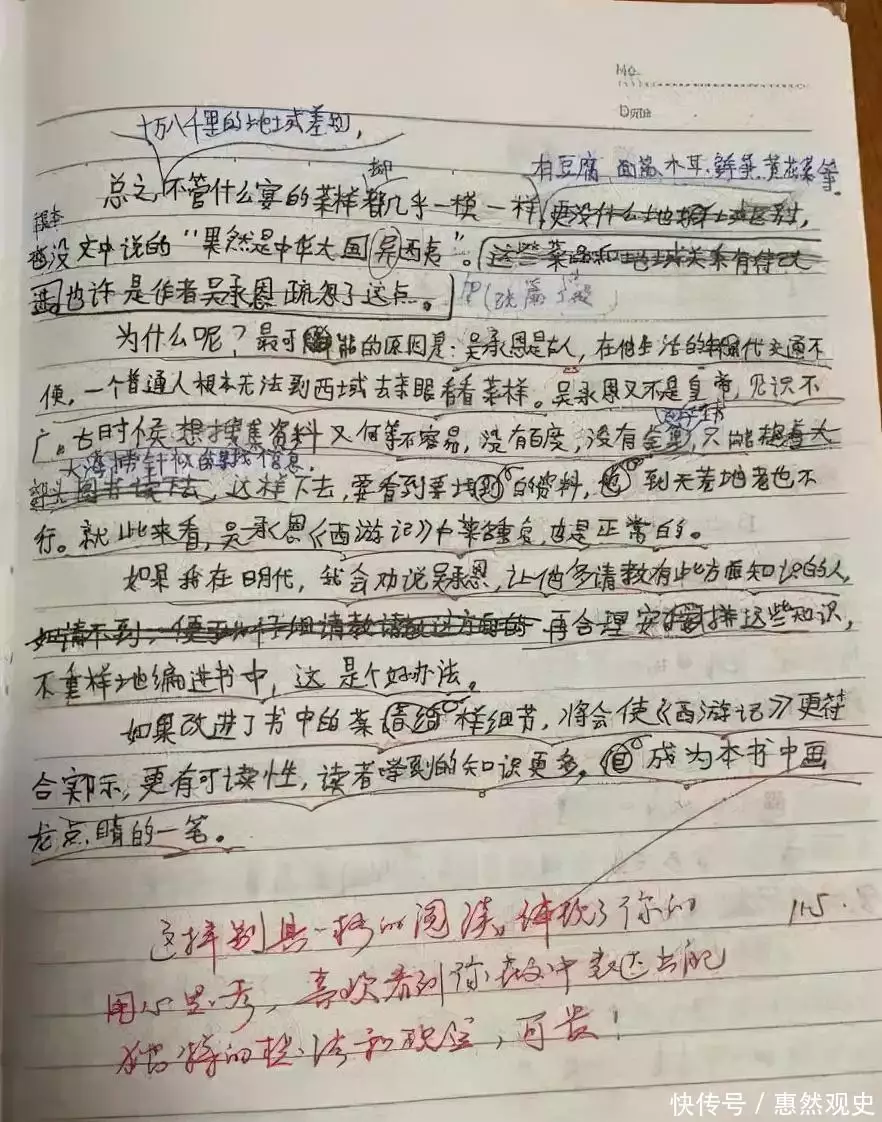 No.
Date
十万八千里的地域差别,
有豆腐 面筋、木耳、鲜菜、黄花菜等。
总之,不管什么宴的菜样都几乎一模一样,更没什么
根本
也没文中说的“果然是中华大国异西夷”。这些菜品和地域关系有待改
进也许是作者吴承恩疏忽了这点。
为什么呢?最可能的原因是:吴承恩是古人,在他生活的年代交通不
便,一个普通人根本无法到西域去亲眼看看菜样。吴承恩又不是皇帝,见识不
广。古时候想搜集资料又何等不容易,没有百度,没有
大海捞针似的寻找信息.
这样下去,要看到要找到的资料,他到天荒地老也不
行。就此来看,吴承恩《西游记》中菜重复,也是正常的。
如果我在明代,我会劝说吴承恩,让他多请教有此方面知识的人,
再合理安排这些知识,
不重样地编进书中,这是个好办法。
如果改进了书中的菜样细节,将会使《西游记》更符
合实际,更有可读性,读者学到的知识更多,但成为本书中画
龙点睛的一笔。
这样别具一格的阅读,体现了你的
11.5.
用心思考,喜欢看到你在文中表达出的
独特的想法和观点,可贵!
快传号 / 惠然观史